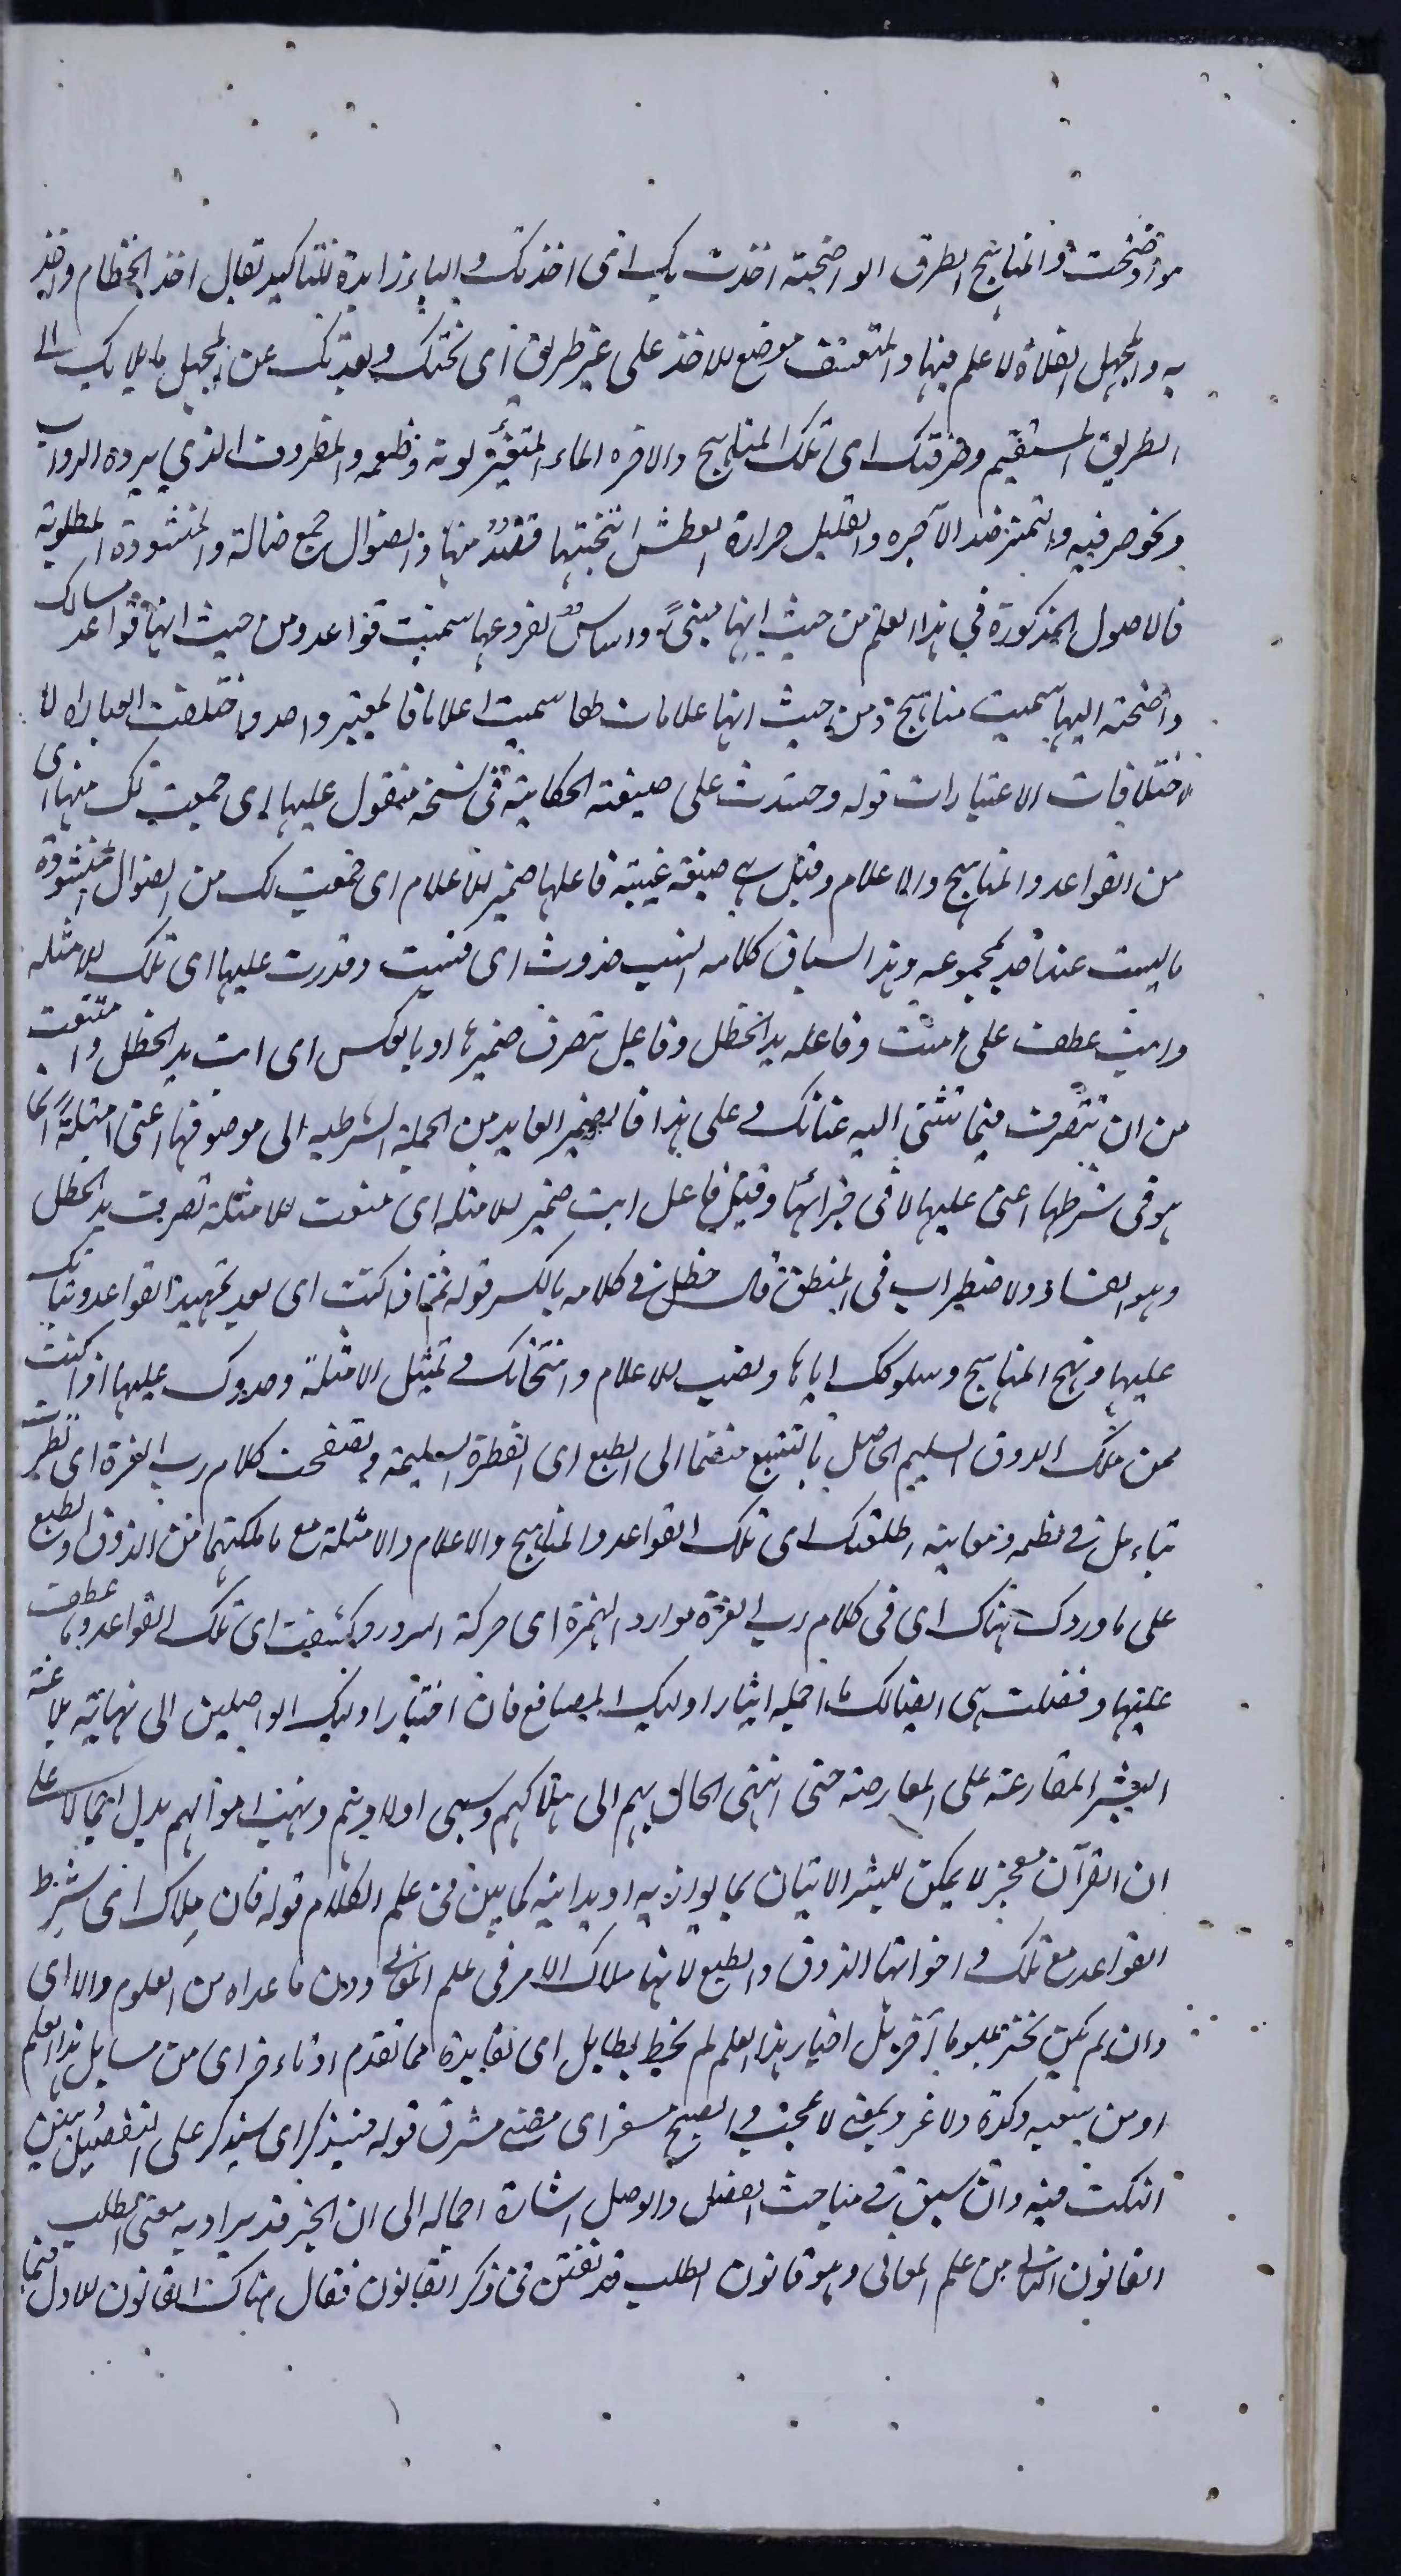 ووضحت والمناهج الطرق الواضحة اخذت بك اى اخذتك والباء زايدة للتاكيد يقال اخذ الخطام واخذ
به والمجهل الفلاة لا علم فيها والمتعسف موضع للاخذ على غير طريق اى نحتك وبعدتك عن المجهل مايلا بك الى
الطريق المستقيم وصرفتك اى تلك المناهج والاجن الماء المتغير لونه وطعمه والمطروق الذي يرده الدواب
ويخوض فيه والنمير ضد الاجن والغليل حرارة العطش انتخبتها فقد منها والضوال جمع ضالة والمنشودة المطلوبة
فالاصول المذكورة في هذا العلم من حيث انها مبنى واساس لفروعها سميت قواعد ومن حيث انها مسالك
واضحة اليها سميت مناهج ومن حيث انها علامات لها سميت اعلاما فالمعبر واحد واختلفت العبارة لا
لاختلافات الاعتبارات قوله وحشدت على صيغة الحكاية في نسخة مقول عليها اى جمعت لك منها اى
من القواعد والمناهج والاعلام وقيل هى صيغة غيبة فاعلها ضمير للاعلام اى جمعت لك من الضوال المنشودة
ما ليست عند احد بمجموعه وهذا السياق كلامه انسب حذوت اى وقدرت عليها اى تلك للامثله
وابت عطف على امنت وفاعله يد الخطل وفاعل تتصرف ضميرها او بالعكس اى ابت يد الخطل وامتنعت
من ان تتصرف فيما تثنى اليه عنانك وعلى هذا فالضمير العايد من الجملة الشرطيه الى موصوفها اعنى امثلة انما
هو فى شرطها اعنى عليها لا فى جزائها وقيل فاعل ابت ضمير للامثله اى منعت للامثلة تصرف يد الخطل
وهو الفساد والاضطراب فى المنطق قال خطل فى كلامه بالكسر قوله ثم اذا كنت اى بعد تمهيد القواعد وبنائك
عليها ونهج المناهج وسلوكك اياها ونصب للاعلام وانتخابك وتمثيل الامثلة وحذوك عليها اذا كنت
ممن ملك الذوق السليم الحاصل بالتتبع منضما الى الطبع اى الفطرة السليمة وتصفحت كلام رب العزة اى نظرت
بتاءمل فى نظمه ومعاينه اطلعتك اى تلك القواعد والمناهج والاعلام والامثلة مع ما ملكتها من الذوق والطبع
على ما وردك هناك اى فى كلام رب العزة موارد الهزة اى حركة السرور وكشفت اى تلك القواعد وما عطف
عليها وفصلت هى ايضا لك ما اجمله ايثار اوليك المصاقع فان اختيار اوليك الواصلين الى نهاية بلاغة
البشر المقارعة على المعارضة حتى انتهى الحال بهم الى هلاكهم وسبى اولادهم ونهب اموالهم يدل اجمالا على
ان القرآن معجز لا يمكن للبشر الاتيان بما يوازيه او يدانيه كما بين فى علم الكلام قوله فان ملاك اى شرط
القواعد مع تلك واخواتها الذوق والطبع لانها ملاك الامر فى علم المعانى ودون ما عداه من العلوم والا اى
وان لم يكن بختر علوما آخر بل اختار هذا العلم لم يحظ بطايل اى بفايدة مما تقدم او تاءخر اى من مسايل هذا العلم
او من سعيه وكده ولا غرو بمعنى لا عجب والصبح مسفر اى مضئ مشرق قوله فنذكر اى سنذكر على التفصيل ونبين
النكت فيه وان سبق فى مباحث الفصل والوصل اشارة اجماليه الى ان الخبر قد يراد به معنى الطلب
القانون الثانى من علم المعانى وهو قانون الطلب قد تفنن فى ذكر القانون فقال هناك القانون للاول فيما